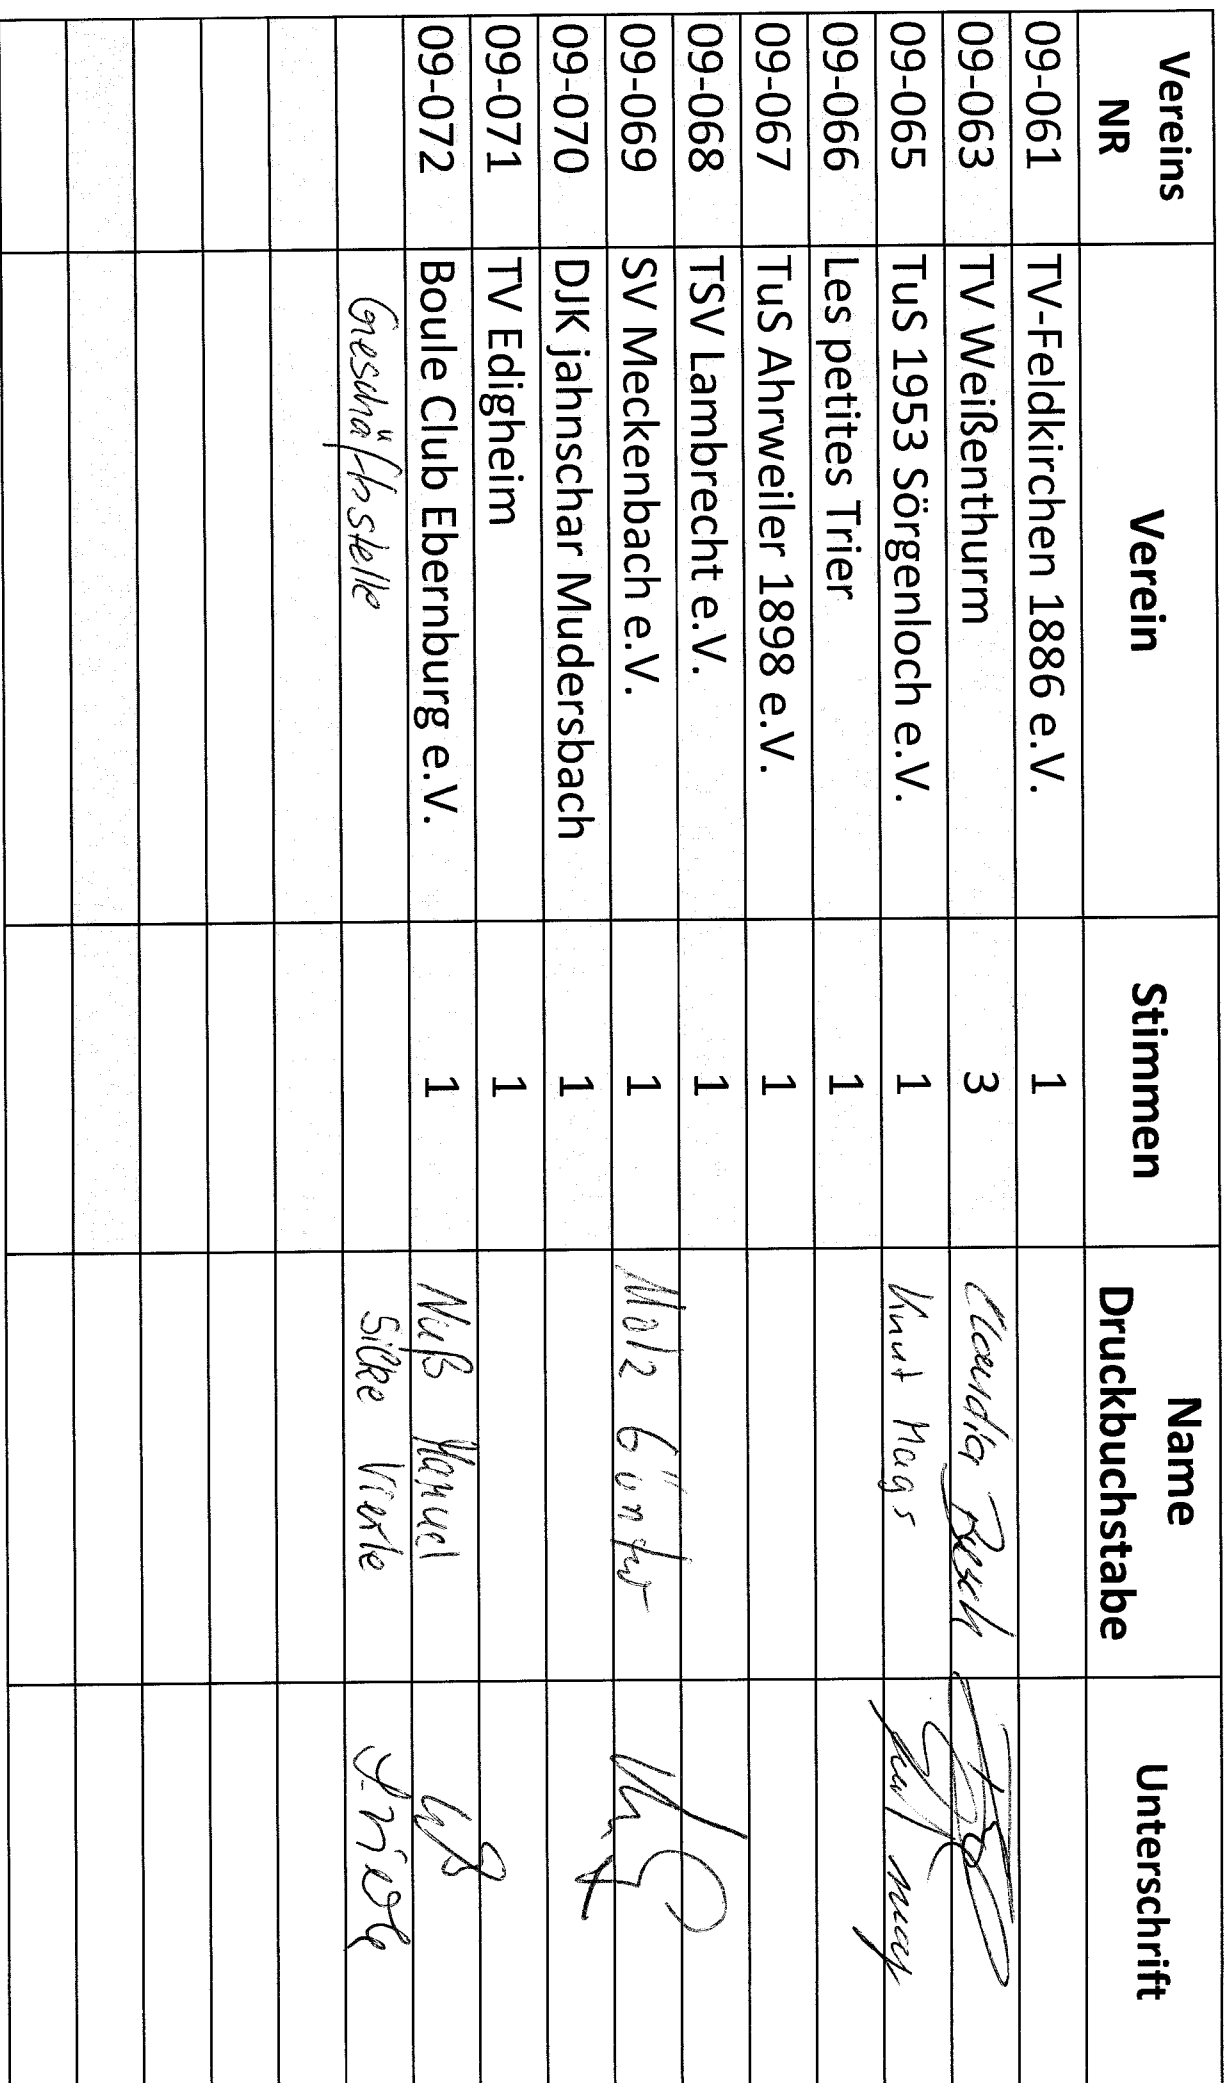 Vereins NR Verein Stimmen Name Druckbuchstabe Unterschrift
09-061 TV-Feldkirchen 1886 e.V. 1
09-063 TV Weißenthurm 3 Claudia Busch
09-065 TuS 1953 Sörgenloch e.V. 1 Knut Mags
09-066 Les petites Trier 1
09-067 TuS Ahrweiler 1898 e.V. 1
09-068 TSV Lambrecht e.V. 1
09-069 SV Meckenbach e.V. 1 Molz Güntur
09-070 DJK jahnschar Mudersbach 1
09-071 TV Edigheim 1
09-072 Boule Club Ebernburg e.V. 1 Nuß Manuel
Geschäftsstelle Silke Vierle